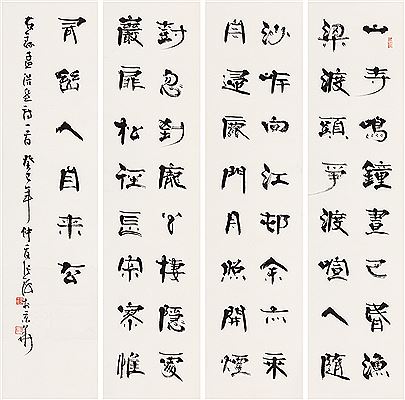 山寺鳴鐘晝已昏漁
梁渡頭爭渡喧人隨
沙岸向江邨余亦乘
舟歸鹿門月照開煙
樹忽到龐公棲隱處
巖扉松徑長寂寥惟
有幽人自来去
右錄孟浩然詩一首